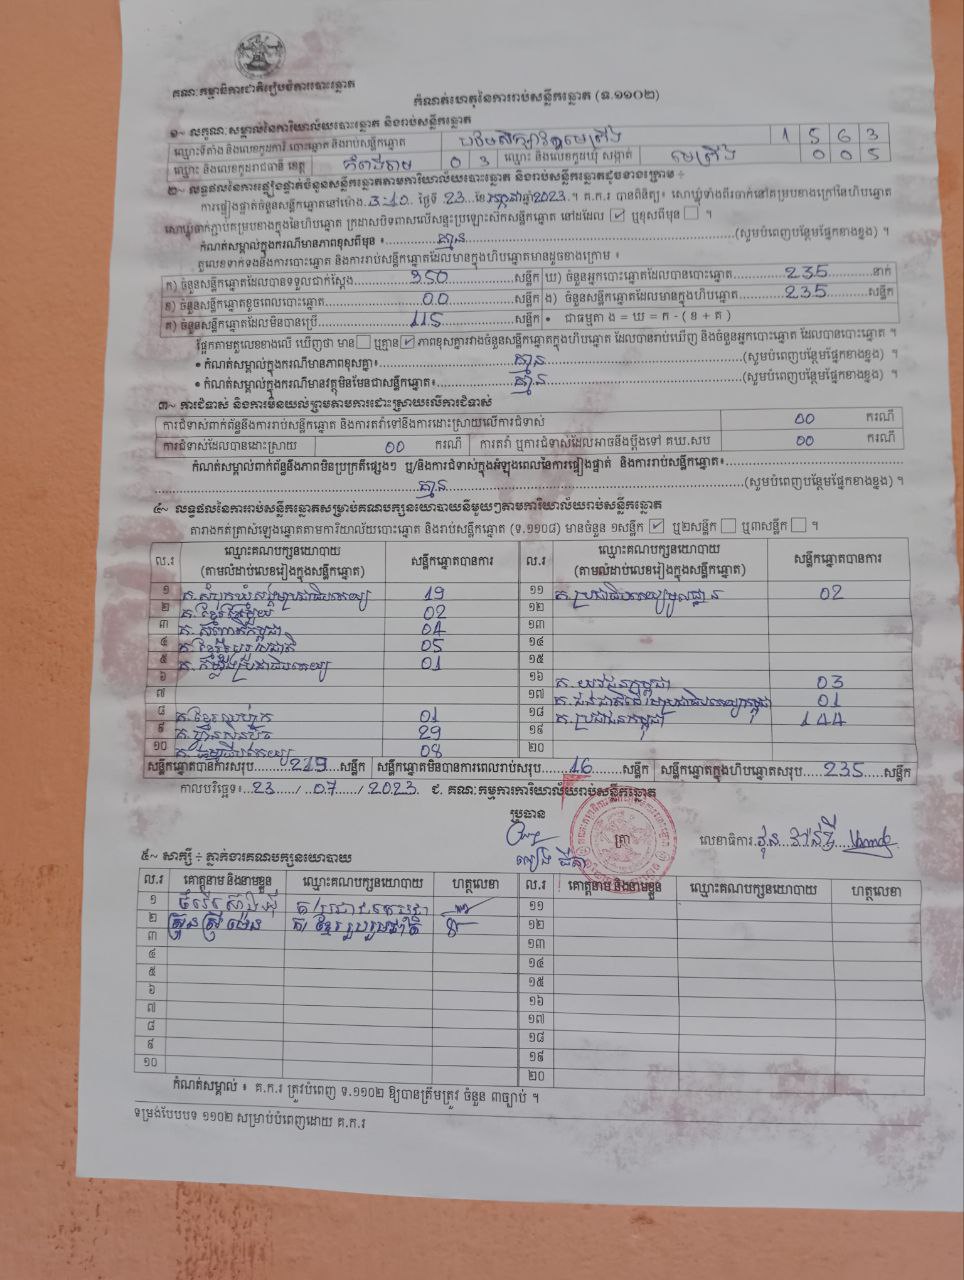 គណៈកម្មាធិការជាតិរៀបចំការបោះឆ្នោត
កំណត់ហេតុនៃការរាប់សន្លឹកឆ្នោត (ទ.១១០២)
១~ លក្ខណៈសម្គាល់នៃការិយាល័យបោះឆ្នោត និងរាប់សន្លឹកឆ្នោត
ឈ្មោះទីតាំង និងលេខកូដការិ.បោះឆ្នោត និងរាប់សន្លឹកឆ្នោត 1 5 6 3
ឈ្មោះ និងលេខកូដរាជធានី ខេត្ត កំពង់ចាម 0 3 ឈ្មោះ និងលេខកូដឃុំ សង្កាត់ មេព្រីង 0 0 5
២~ លទ្ធផលនៃការផ្ទៀងផ្ទាត់ចំនួនសន្លឹកឆ្នោតតាមការិយាល័យបោះឆ្នោត និងរាប់សន្លឹកឆ្នោតដូចខាងក្រោម ÷
ការផ្ទៀងផ្ទាត់ចំនួនសន្លឹកឆ្នោតនៅម៉ោង.3:10. ថ្ងៃទី 23...ខែ កក្កដា ឆ្នាំ2023..។ គ.ក.រ បានពិនិត្យ៖ សោឃ្លុំទាំងពីរចាក់នៅគម្របខាងក្រៅនៃហិបឆ្នោត
សោឃ្លុំចាក់ភ្ជាប់គម្របខាងក្នុងនៃហិបឆ្នោត ក្រដាសបិទពាសលើសន្ទះប្រឡោះសិកសន្លឹកឆ្នោត នៅដដែល ☑ ឬខុសពីមុន ☐ ។
កំណត់សម្គាល់ក្នុងករណីមានភាពខុសពីមុន ៖ គ្មាន (សូមបំពេញបន្ថែមផ្នែកខាងខ្នង) ។
តួលេខទាក់ទងនឹងការបោះឆ្នោត និងការរាប់សន្លឹកឆ្នោតដែលមានក្នុងហិបឆ្នោតមានដូចខាងក្រោម ៖
ក) ចំនួនសន្លឹកឆ្នោតដែលបានទទួលជាក់ស្តែង 350 សន្លឹក ឃ) ចំនួនអ្នកបោះឆ្នោតដែលបានបោះឆ្នោត 235 នាក់
ខ) ចំនួនសន្លឹកឆ្នោតខូចពេលបោះឆ្នោត 00 សន្លឹក ង) ចំនួនសន្លឹកឆ្នោតដែលមានក្នុងហិបឆ្នោត 235 សន្លឹក
គ) ចំនួនសន្លឹកឆ្នោតដែលមិនបានប្រើ 115 សន្លឹក • ជាធម្មតា ង = ឃ = ក - ( ខ + គ )
ផ្អែកតាមតួលេខខាងលើ ឃើញថា មាន ☐ ឬគ្មាន ☑ ភាពខុសគ្នារវាងចំនួនសន្លឹកឆ្នោតក្នុងហិបឆ្នោត ដែលបានរាប់ឃើញ និងចំនួនអ្នកបោះឆ្នោត ដែលបានបោះឆ្នោត ។
• កំណត់សម្គាល់ក្នុងករណីមានភាពខុសគ្នា៖ គ្មាន (សូមបំពេញបន្ថែមផ្នែកខាងខ្នង) ។
• កំណត់សម្គាល់ក្នុងករណីមានវត្ថុមិនមែនជាសន្លឹកឆ្នោត៖ គ្មាន (សូមបំពេញបន្ថែមផ្នែកខាងខ្នង) ។
៣~ ការជំទាស់ និងការមិនយល់ព្រមតាមការដោះស្រាយលើការជំទាស់
ការជំទាស់ពាក់ព័ន្ធនឹងការរាប់សន្លឹកឆ្នោត និងការតវ៉ាទៅនឹងការដោះស្រាយលើការជំទាស់ 00 ករណី
ការជំទាស់ដែលបានដោះស្រាយ 00 ករណី ការតវ៉ា ឬការជំទាស់ដែលអាចនឹងប្តឹងទៅ គឃ.សប 00 ករណី
កំណត់សម្គាល់ពាក់ព័ន្ធនឹងភាពមិនប្រក្រតីផ្សេងៗ ឬ/និងការជំទាស់ក្នុងអំឡុងពេលនៃការផ្ទៀងផ្ទាត់ និងការរាប់សន្លឹកឆ្នោត៖
គ្មាន (សូមបំពេញបន្ថែមផ្នែកខាងខ្នង) ។
៤~ លទ្ធផលនៃការរាប់សន្លឹកឆ្នោតសម្រាប់គណបក្សនយោបាយនីមួយៗតាមការិយាល័យរាប់សន្លឹកឆ្នោត
តារាងកត់ត្រាសំឡេងឆ្នោតតាមការិយាល័យបោះឆ្នោត និងរាប់សន្លឹកឆ្នោត (ទ.១១០៨) មានចំនួន ១សន្លឹក ☑ ឬ២សន្លឹក ☐ ឬ៣សន្លឹក ☐ ។
ល.រ ឈ្មោះគណបក្សនយោបាយ (តាមលំដាប់លេខរៀងក្នុងសន្លឹកឆ្នោត) សន្លឹកឆ្នោតបានការ ល.រ ឈ្មោះគណបក្សនយោបាយ (តាមលំដាប់លេខរៀងក្នុងសន្លឹកឆ្នោត) សន្លឹកឆ្នោតបានការ
១ គ.សំបុកឃ្មុំសង្គមប្រជាធិបតេយ្យ 19 ១១ គ.ប្រជាធិបតេយ្យមូលដ្ឋាន 02
២ គ.ខ្មែរ 02 ១២
៣ គ.សញ្ជាតិកម្ពុជា 04 ១៣
៤ គ.ខ្មែររួបរួមជាតិ 05 ១៤
៥ គ.កម្លាំងប្រជាធិបតេយ្យ 01 ១៥
៦ ១៦ គ.យុវជនកម្ពុជា 03
៧ ១៧ គ.ជនជាតិដើមប្រជាធិបតេយ្យកម្ពុជា 01
៨ គ.ខ្មែរឈប់ក្រ 01 ១៨ គ.ប្រជាជនកម្ពុជា 144
៩ គ.ហ៊្វុនស៊ិនប៉ិច 29 ១៩
១០ គ.ធម្មាធិបតេយ្យ 08 ២០
សន្លឹកឆ្នោតបានការសរុប 219 សន្លឹក សន្លឹកឆ្នោតមិនបានការពេលរាប់សរុប 16 សន្លឹក សន្លឹកឆ្នោតក្នុងហិបឆ្នោតសរុប 235 សន្លឹក
កាលបរិច្ឆេទ៖ 23 / 07 / 2023 ជ. គណៈកម្មការការិយាល័យរាប់សន្លឹកឆ្នោត
ប្រធាន
ត្រា លេខាធិការ
៥~ សាក្សី ÷ ភ្នាក់ងារគណបក្សនយោបាយ
ល.រ គោត្តនាម និងនាមខ្លួន ឈ្មោះគណបក្សនយោបាយ ហត្ថលេខា ល.រ គោត្តនាម និងនាមខ្លួន ឈ្មោះគណបក្សនយោបាយ ហត្ថលេខា
១ គ/ប្រជាជនកម្ពុជា ១១
២ គ/ ខ្មែររួបរួមជាតិ ១២
៣ ១៣
៤ ១៤
៥ ១៥
៦ ១៦
៧ ១៧
៨ ១៨
៩ ១៩
១០ ២០
កំណត់សម្គាល់ ៖ គ.ក.រ ត្រូវបំពេញ ទ.១១០២ ឱ្យបានត្រឹមត្រូវ ចំនួន ៣ច្បាប់ ។
ទម្រង់បែបបទ ១១០២ សម្រាប់បំពេញដោយ គ.ក.រ